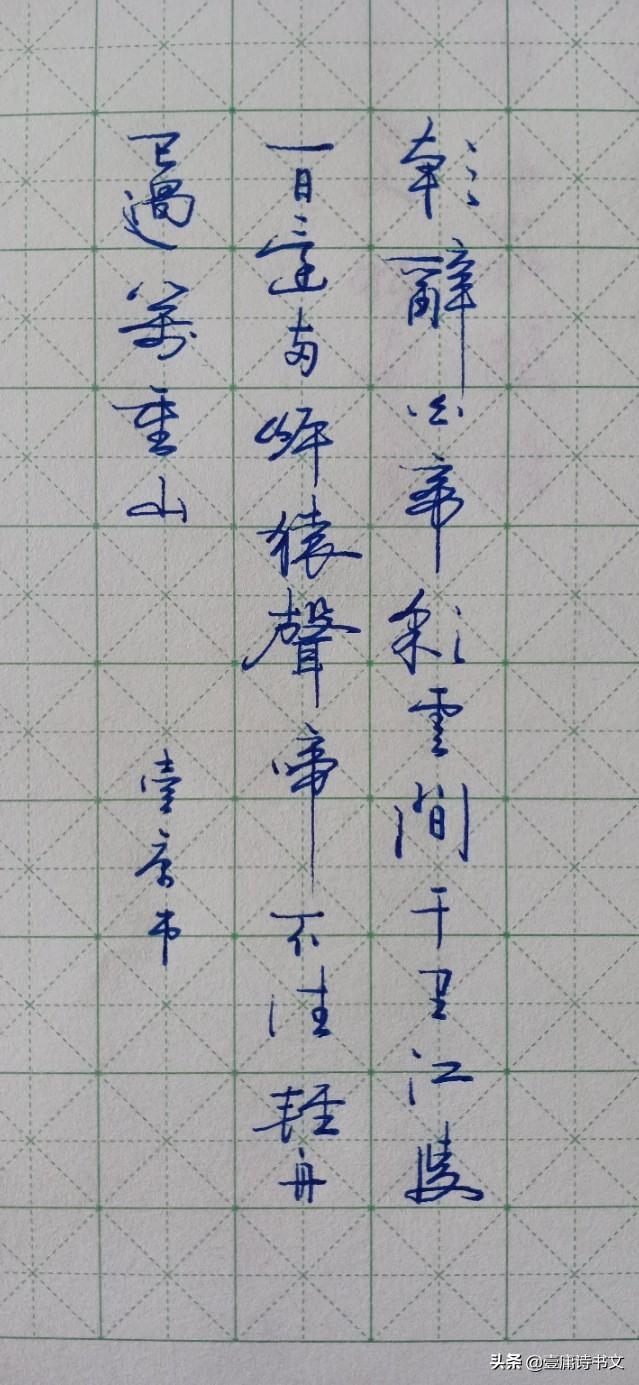 朝辭白帝彩雲間千里江陵
一日還两岸猿聲啼不住輕舟
已過萬重山 壹庸书
头条 @壹庸诗书文